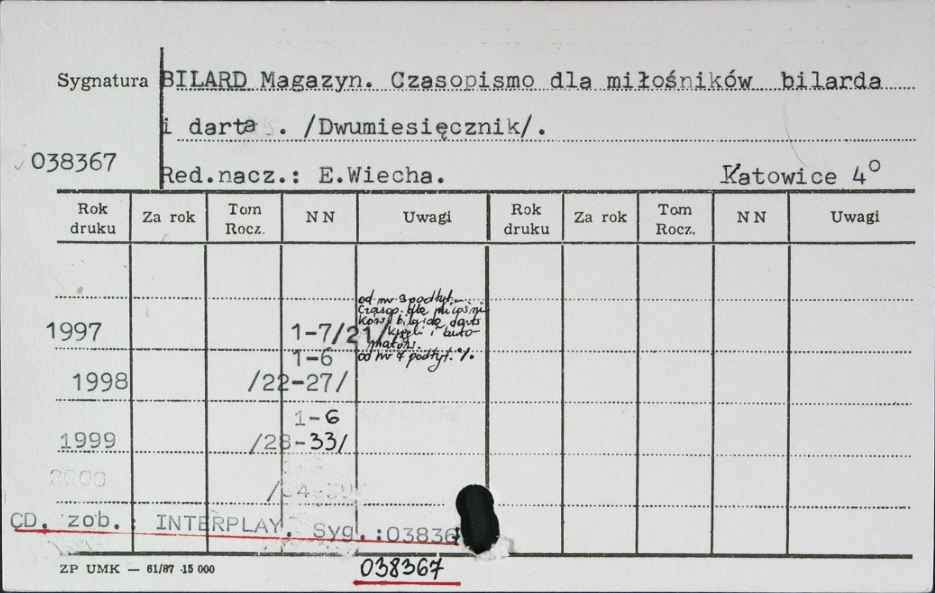 Sygnatura BILARD Magazyn. Czasopismo dla miłośników bilarda
i darta . /Dwumiesięcznik/.
038367
Red.nacz.: E.Wiecha. Katowice 4°
Rok druku Za rok Tom Rocz. NN Uwagi Rok druku Za rok Tom Rocz. NN Uwagi
od nr 3 podtyt.
Czasop. dla miłośni
ków bilarda darts
1997 1-7/21/ kręgli i auto-
matów.
1-6 od nr 7 podtyt. %.
1998 /22-27/
1-6
1999 /28-33/
2000
CD. zob.: INTERPLAY. Syg.:03836
ZP UMK — 61/87 15 000 038367